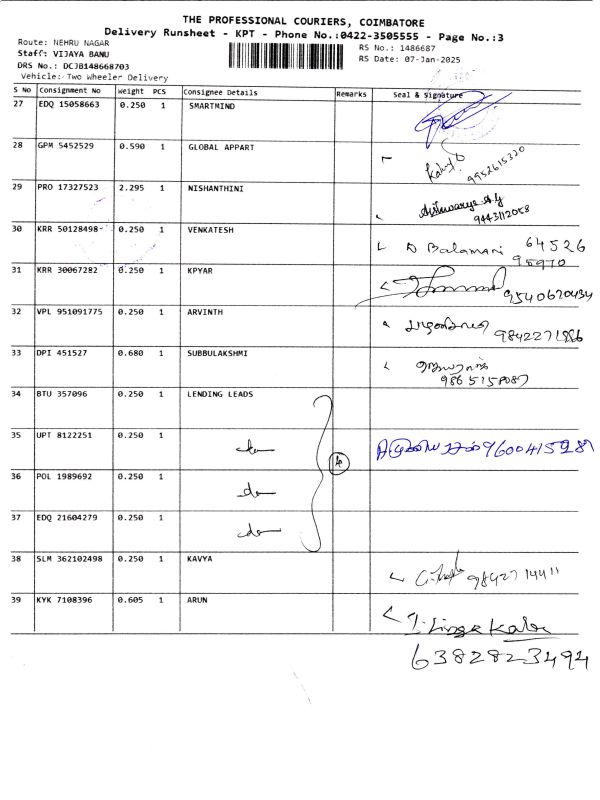 THE PROFESSIONAL COURIERS, COIMBATORE
Delivery Runsheet - KPT - Phone No.:0422-3505555 - Page No.:3
Route: NEHRU NAGAR
RS No.: 1486687
Staff: VIJAYA BANU
RS Date: 07-Jan-2025
DRS No.: DCJB148668703
Vehicle: Two Wheeler Delivery
S No Consignment No Weight PCS Consignee Details Remarks Seal & Signature
27 EDQ 15058663 0.250 1 SMARTMIND
28 GPM 5452529 0.590 1 GLOBAL APPART
9952615320
29 PRO 17327523 2.295 1 NISHANTHINI
Aishwarya
9443112058
30 KRR 50128498 0.250 1 VENKATESH
D Balamani 64526
95970
31 KRR 30067282 0.250 1 KPYAR
9540620434
32 VPL 951091775 0.250 1 ARVINTH
9842271886
33 DPI 451527 0.680 1 SUBBULAKSHMI
9865158087
34 BTU 357096 0.250 1 LENDING LEADS
35 UPT 8122251 0.250 1 do 4
9600415987
36 POL 1989692 0.250 1 do
37 EDQ 21604279 0.250 1 do
38 SLM 362102498 0.250 1 KAVYA
9842714411
39 KYK 7108396 0.605 1 ARUN
6382823494